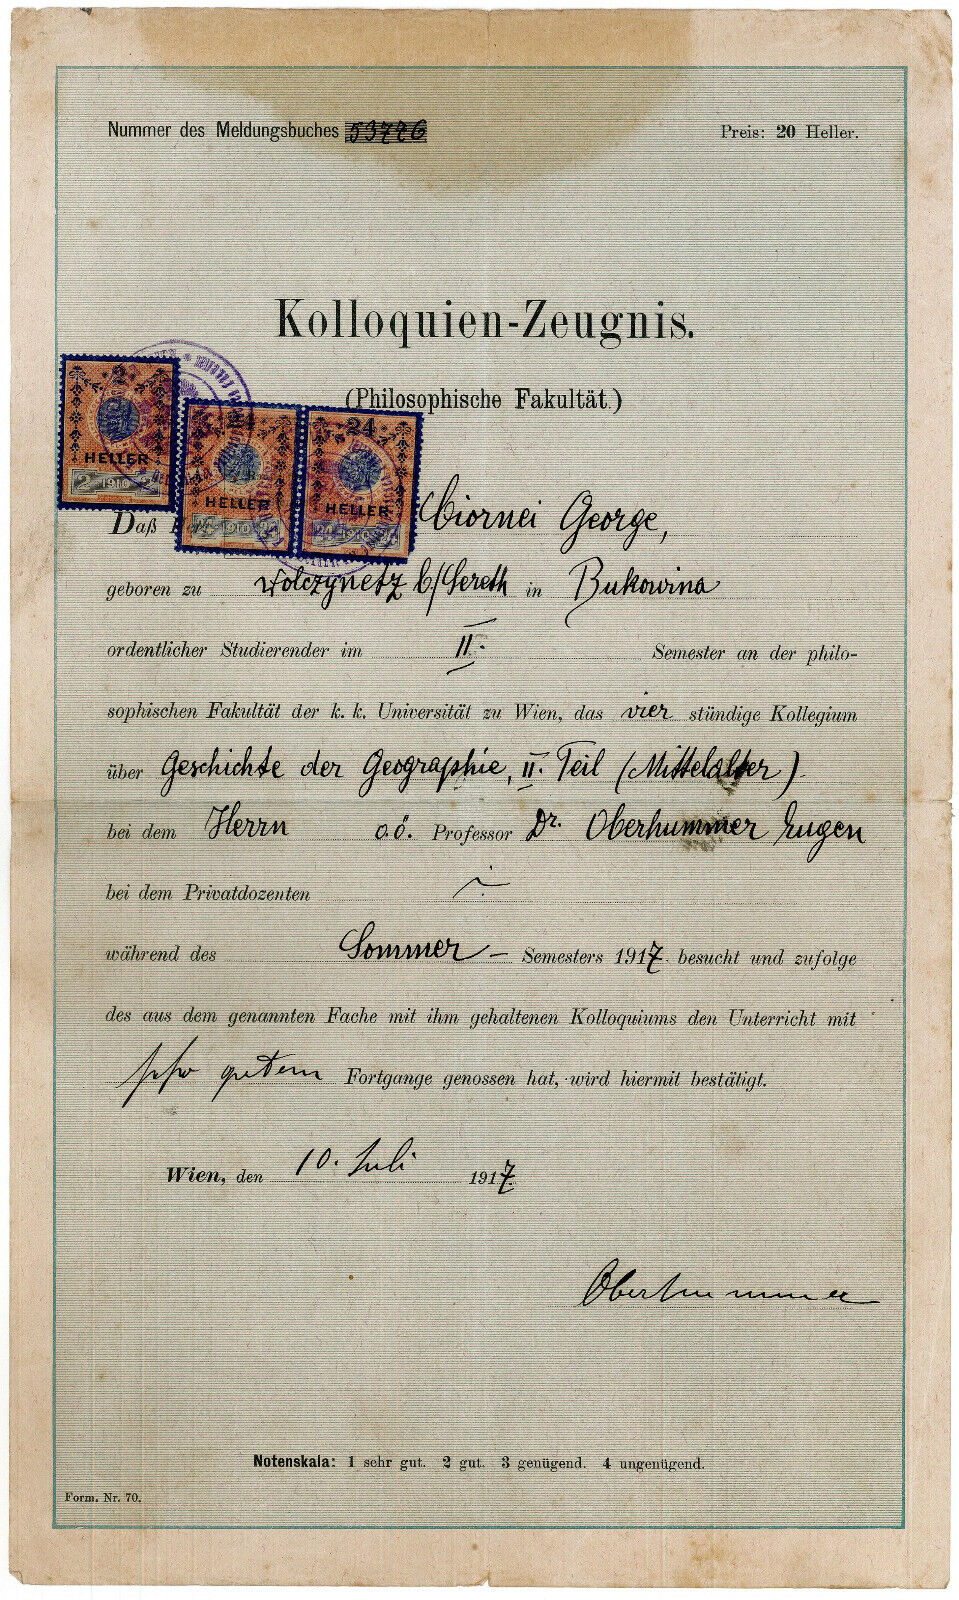 Nummer des Meldungsbuches 53776
Preis: 20 Heller.
Kolloquien-Zeugnis.
(Philosophische Fakultät.)
HELLER
2 1910
24
HELLER
1910
24
HELLER
24 1910
Daß Ciornei George,
geboren zu Wolczynetz b/Sereth in Bukowina
ordentlicher Studierender im II. Semester an der philo-
sophischen Fakultät der k. k. Universität zu Wien, das vier stündige Kollegium
über Geschichte der Geographie, II. Teil (Mittelalter)
bei dem Herrn o.ö. Professor Dr. Oberhummer Eugen
bei dem Privatdozenten
während des Sommer- Semesters 1917 besucht und zufolge
des aus dem genannten Fache mit ihm gehaltenen Kolloquiums den Unterricht mit
sehr gutem Fortgange genossen hat, wird hiermit bestätigt.
Wien, den 10. Juli 1917
Oberhummer
Notenskala: 1 sehr gut. 2 gut. 3 genügend. 4 ungenügend.
Form. Nr. 70.